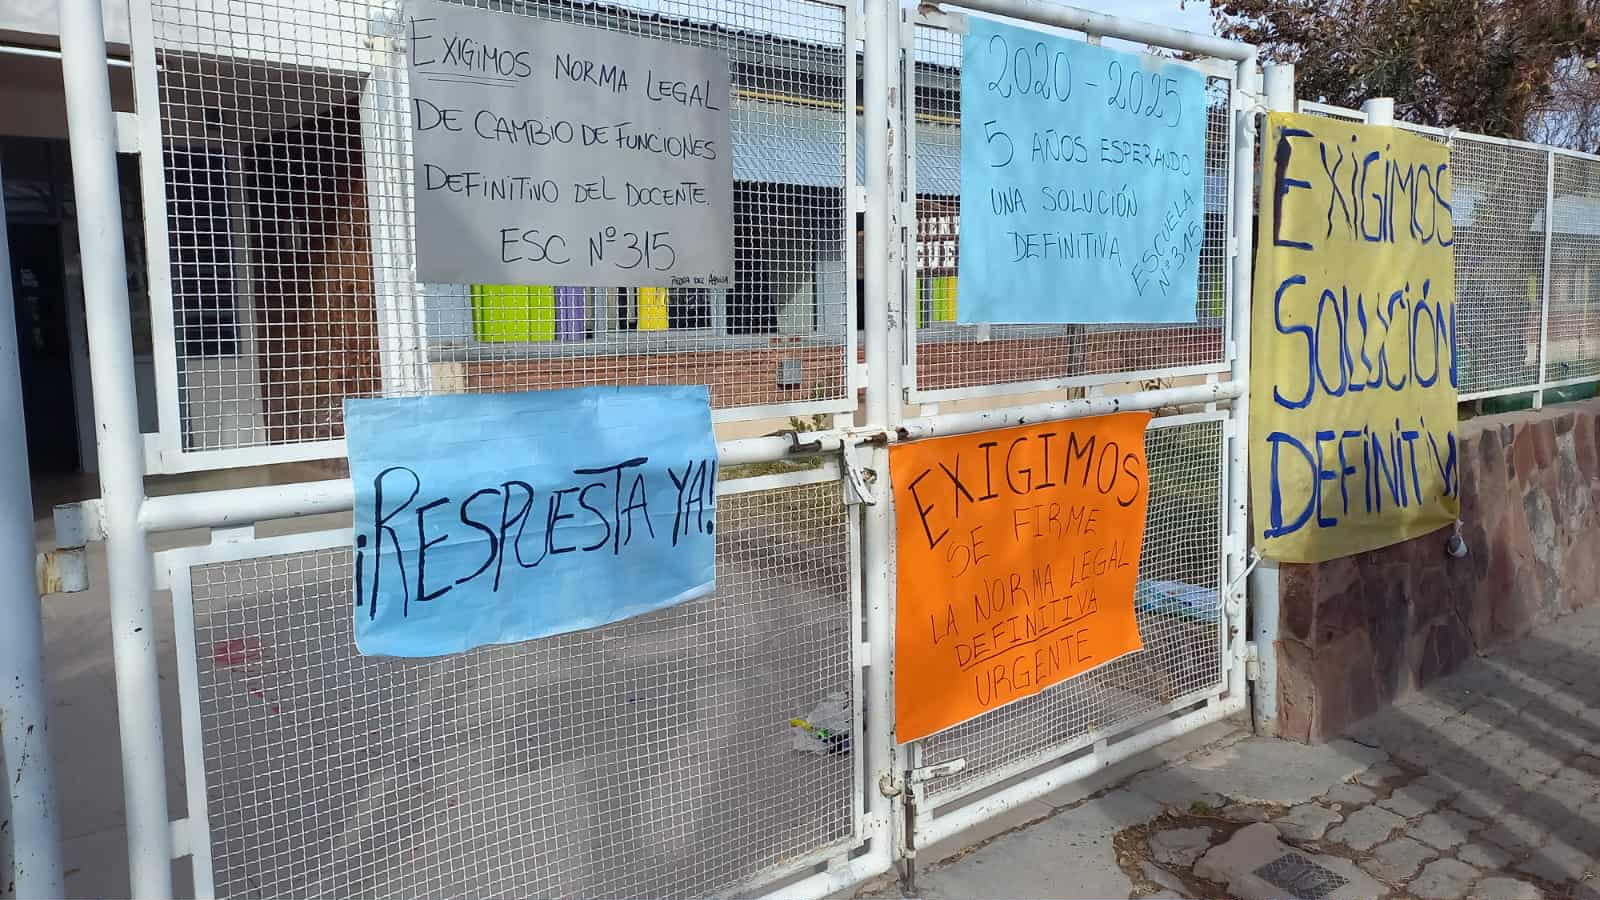 EXIGIMOS NORMA LEGAL
DE CAMBIO DE FUNCIONES
DEFINITIVO DEL DOCENTE.
ESC Nº 315
PIEDRA DEL ÁGUILA
2020 - 2025
5 AÑOS ESPERANDO
UNA SOLUCIÓN
DEFINITIVA
ESCUELA
Nº 315
EXIGIMOS
SOLUCIÓN
DEFINITIVA
¡RESPUESTA YA!
EXIGIMOS
SE FIRME
LA NORMA LEGAL
DEFINITIVA
URGENTE